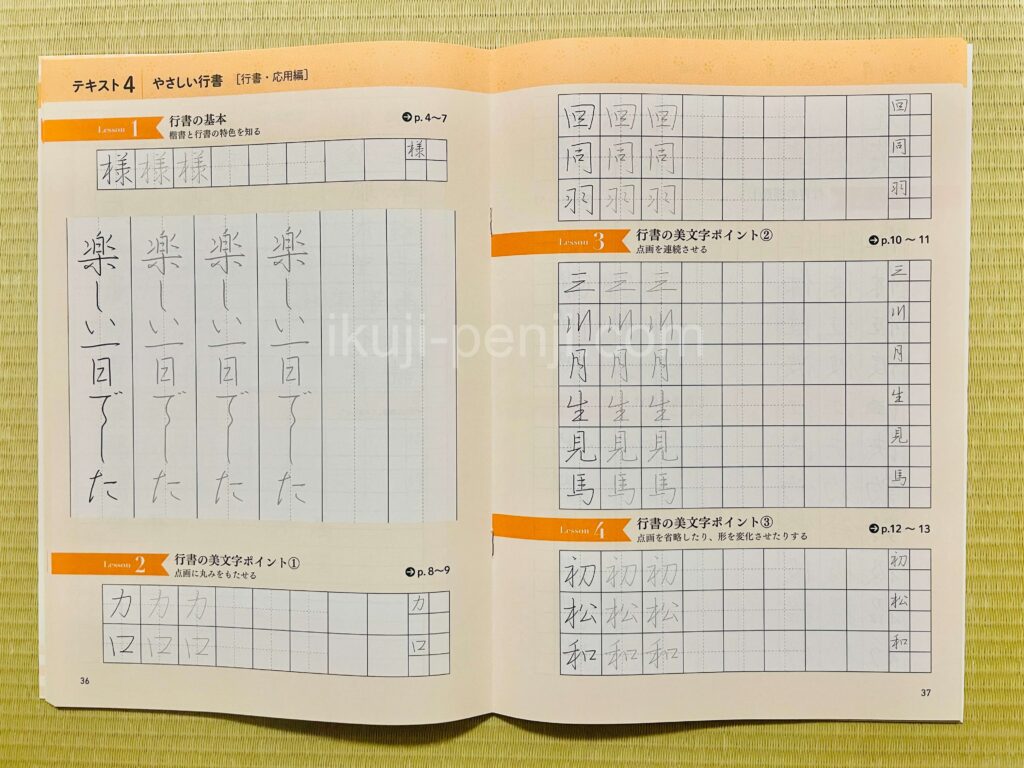 テキスト4 やさしい行書 [行書・応用編]
Lesson 1 行書の基本 p. 4〜7
楷書と行書の特色を知る
様 様 様 様
楽しい一日でした
楽しい一日でした
楽しい一日でした
楽しい一日でした
Lesson 2 行書の美文字ポイント① p. 8〜9
点画に丸みをもたせる
力 力 力 力
口 口 口 口
36
回 回 回 回
同 同 同 同
羽 羽 羽 羽
Lesson 3 行書の美文字ポイント② p.10 〜 11
点画を連続させる
三 三 三 三
川 川 川 川
月 月 月 月
生 生 生 生
見 見 見 見
馬 馬 馬 馬
Lesson 4 行書の美文字ポイント③ p.12 〜 13
点画を省略したり、形を変化させたりする
初 初 初 初
松 松 松 松
和 和 和 和
37
ikuji-penji.com